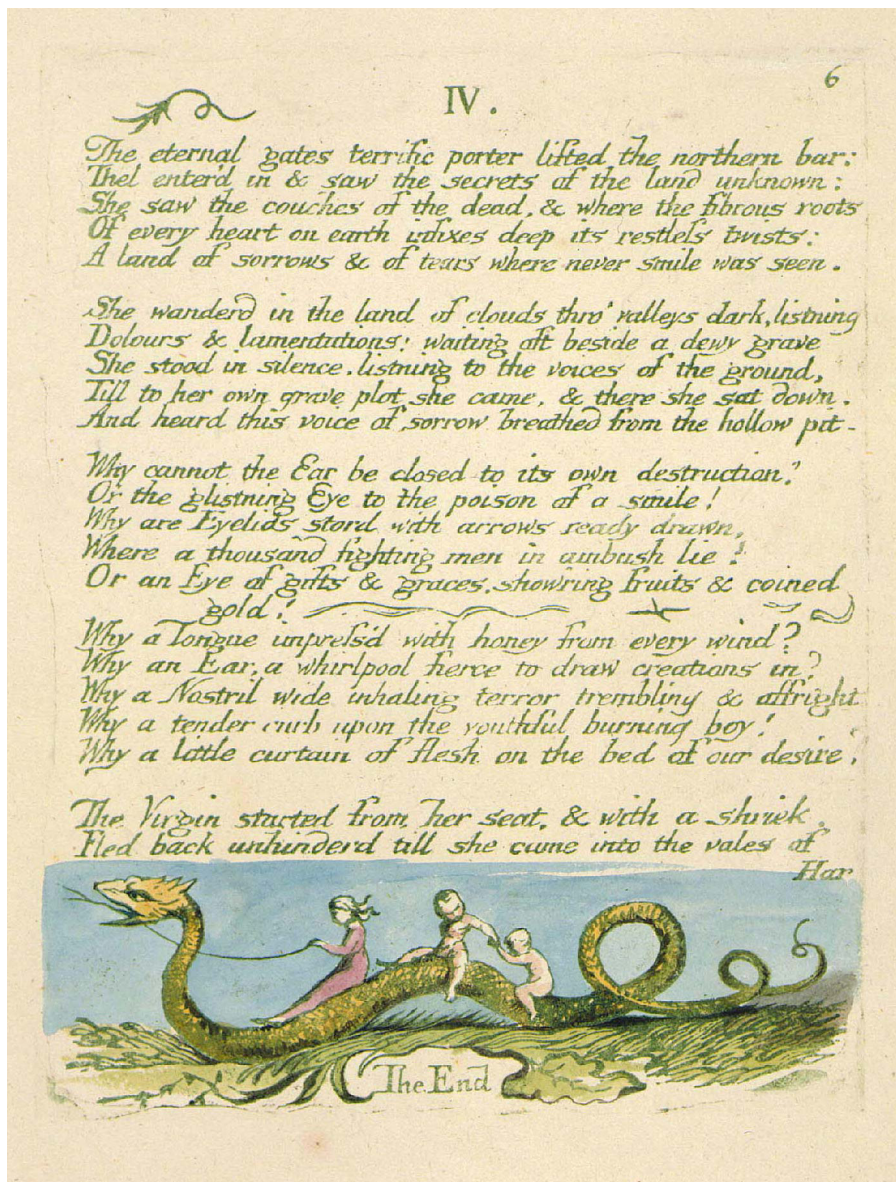 6
IV.
The eternal gates terrific porter lifted the northern bar:
Thel enter'd in & saw the secrets of the land unknown:
She saw the couches of the dead, & where the fibrous roots
Of every heart on earth infixes deep its restless twists:
A land of sorrows & of tears where never smile was seen.
She wanderd in the land of clouds thro' valleys dark, listning
Dolours & lamentations: waiting oft beside a dewy grave
She stood in silence, listning to the voices of the ground,
Till to her own grave plot she came, & there she sat down.
And heard this voice of sorrow breathed from the hollow pit.
Why cannot the Ear be closed to its own destruction?
Or the glistning Eye to the poison of a smile!
Why are Eyelids stord with arrows ready drawn,
Where a thousand fighting men in ambush lie!
Or an Eye of gifts & graces, show'ring fruits & coined
gold!
Why a Tongue impress'd with honey from every wind?
Why an Ear, a whirlpool fierce to draw creations in?
Why a Nostril wide inhaling terror trembling & affright
Why a tender curb upon the youthful burning boy!
Why a little curtain of flesh on the bed of our desire.
The Virgin started from her seat, & with a shriek.
Fled back unhinderd till she came into the vales of
Har
The End